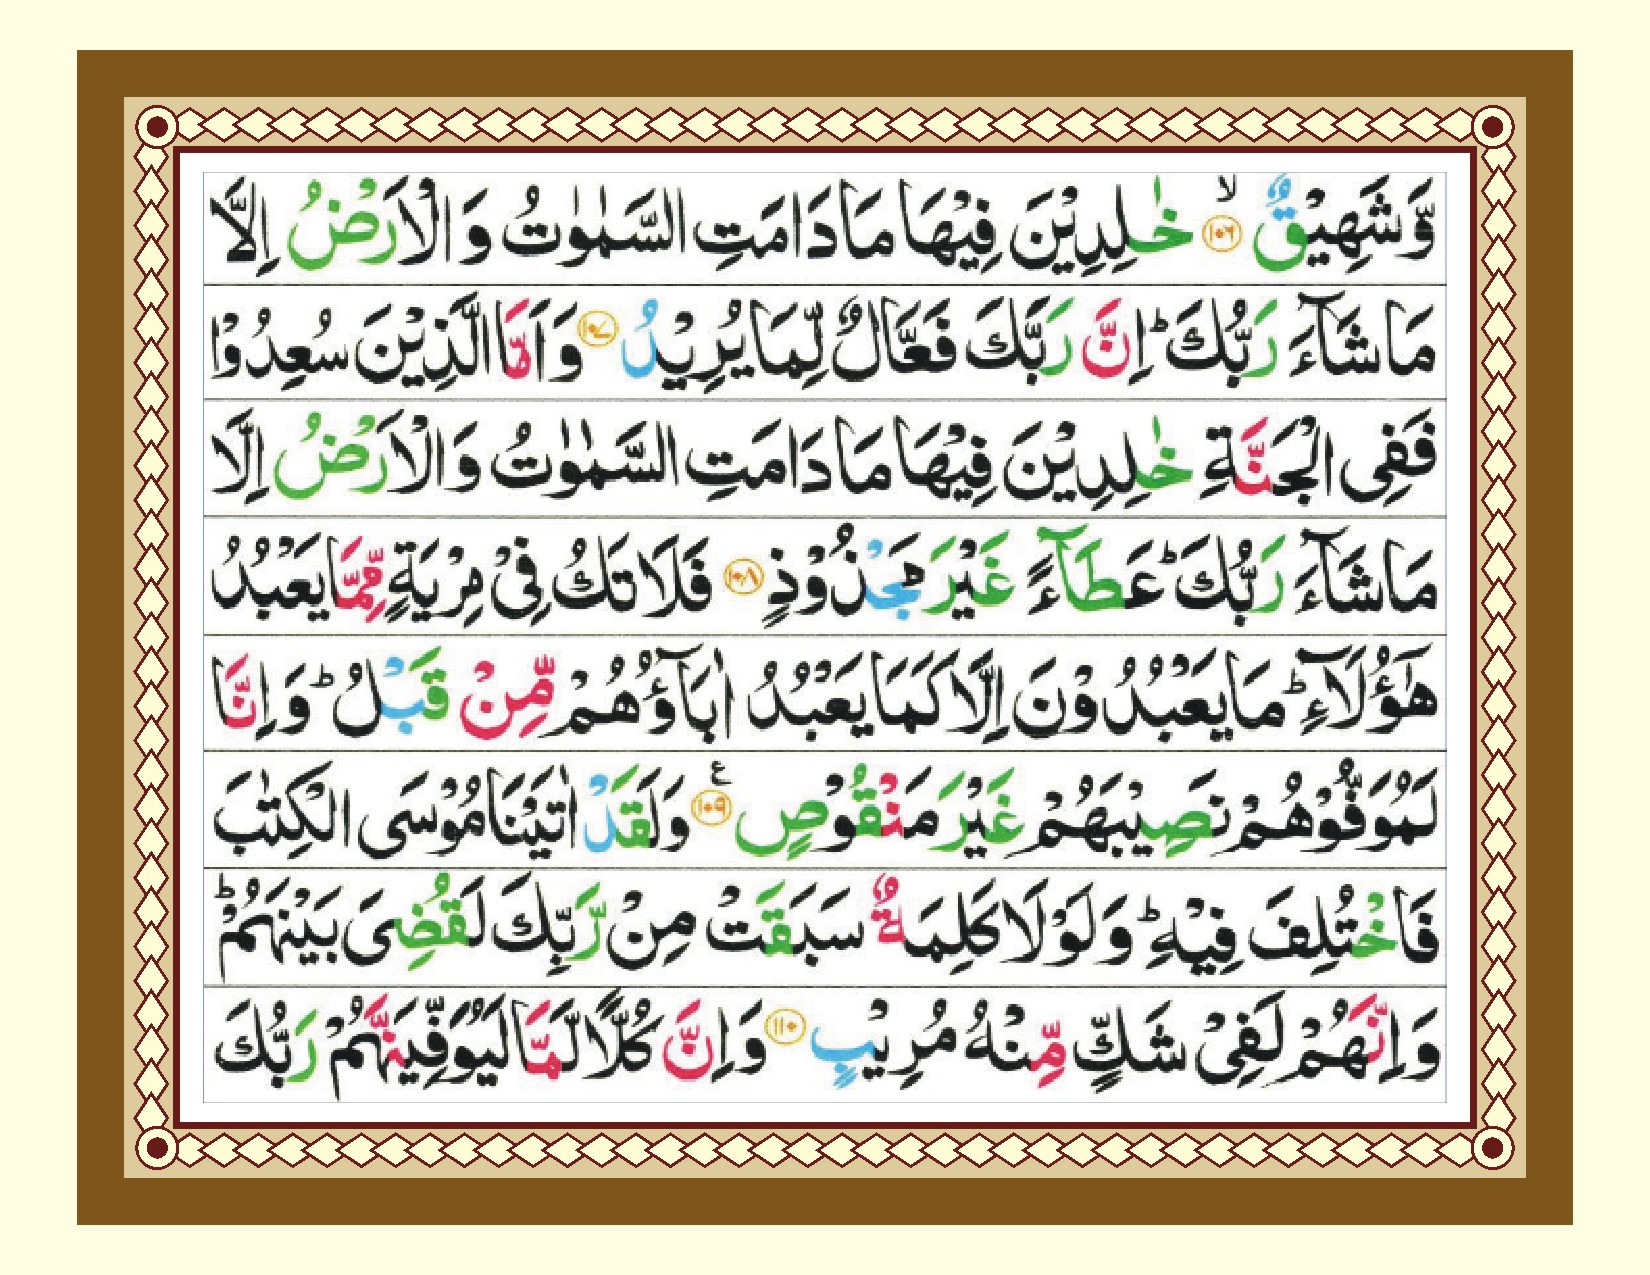 وَّشَهِيْقٌ ۙ‏﴿۱۰۶﴾ خٰلِدِيْنَ فِيْهَا مَا دَامَتِ السَّمٰوٰتُ وَ الْاَرْضُ اِلَّا
مَا شَآءَ رَبُّكَ ؕ اِنَّ رَبَّكَ فَعَّالٌ لِّمَا يُرِيْدُ ﴿۱۰۷﴾ وَ اَمَّا الَّذِيْنَ سُعِدُوْا
فَفِى الْجَنَّةِ خٰلِدِيْنَ فِيْهَا مَا دَامَتِ السَّمٰوٰتُ وَ الْاَرْضُ اِلَّا
مَا شَآءَ رَبُّكَ ؕ عَطَآءً غَيْرَ مَجْذُوْذٍ ﴿۱۰۸﴾ فَلَا تَكُ فِىْ مِرْيَةٍ مِّمَّا يَعْبُدُ
هٰٓؤُلَآءِ ؕ مَا يَعْبُدُوْنَ اِلَّا كَمَا يَعْبُدُ اٰبَآؤُهُمْ مِّنْ قَبْلُ ؕ وَ اِنَّا
لَمُوَفُّوْهُمْ نَصِيْبَهُمْ غَيْرَ مَنْقُوْصٍ ﴿۱۰۹﴾ ع وَلَقَدْ اٰتَيْنَا مُوْسَى الْكِتٰبَ
فَاخْتُلِفَ فِيْهِ ؕ وَ لَوْ لَا كَلِمَةٌ سَبَقَتْ مِنْ رَّبِّكَ لَقُضِىَ بَيْنَهُمْ ؕ
وَ اِنَّهُمْ لَفِىْ شَكٍّ مِّنْهُ مُرِيْبٍ ﴿۱۱۰﴾ وَ اِنَّ كُلًّا لَّمَّا لَيُوَفِّيَنَّهُمْ رَبُّكَ